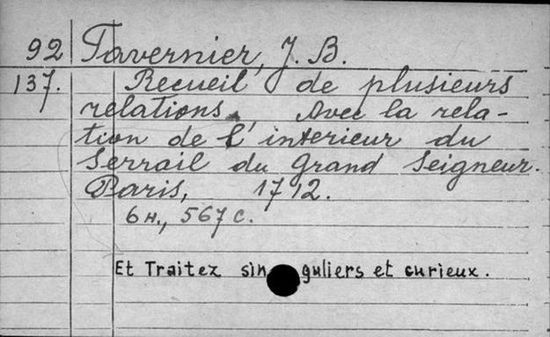 92 Tavernier, J. B.
137. Recueil de plusieurs
relations. Avec la rela-
tion de l'interieur du
Serrail du Grand Seigneur.
Paris, 1712.
6 н., 567 с.
Et Traitez singuliers et curieux.